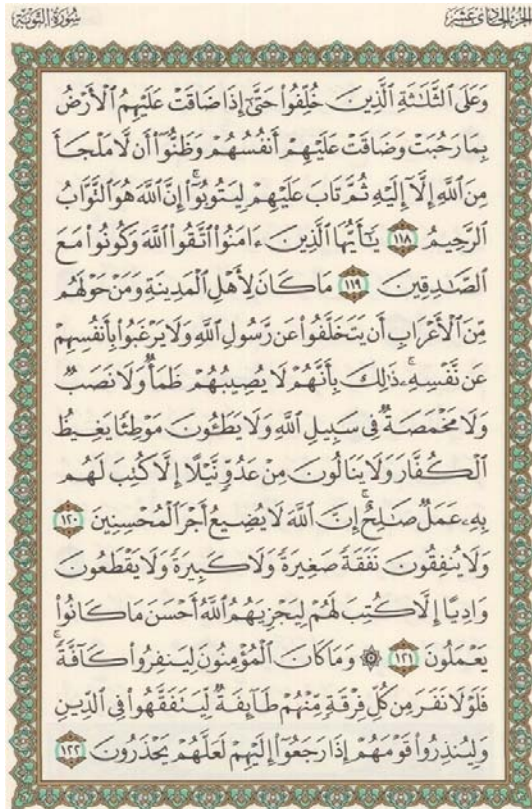 الجزء الحادي عشر
سورة التوبة
وَعَلَى ٱلثَّلَـٰثَةِ ٱلَّذِينَ خُلِّفُوا۟ حَتَّىٰٓ إِذَا ضَاقَتْ عَلَيْهِمُ ٱلْأَرْضُ
بِمَا رَحُبَتْ وَضَاقَتْ عَلَيْهِمْ أَنفُسُهُمْ وَظَنُّوٓا۟ أَن لَّا مَلْجَأَ
مِنَ ٱللَّهِ إِلَّآ إِلَيْهِ ثُمَّ تَابَ عَلَيْهِمْ لِيَتُوبُوٓا۟ ۚ إِنَّ ٱللَّهَ هُوَ ٱلتَّوَّابُ
ٱلرَّحِيمُ ١١٨ يَـٰٓأَيُّهَا ٱلَّذِينَ ءَامَنُوا۟ ٱتَّقُوا۟ ٱللَّهَ وَكُونُوا۟ مَعَ
ٱلصَّـٰدِقِينَ ١١٩ مَا كَانَ لِأَهْلِ ٱلْمَدِينَةِ وَمَنْ حَوْلَهُم
مِّنَ ٱلْأَعْرَابِ أَن يَتَخَلَّفُوا۟ عَن رَّسُولِ ٱللَّهِ وَلَا يَرْغَبُوا۟ بِأَنفُسِهِمْ
عَن نَّفْسِهِۦ ۚ ذَٰلِكَ بِأَنَّهُمْ لَا يُصِيبُهُمْ ظَمَأٌ وَلَا نَصَبٌ
وَلَا مَخْمَصَةٌ فِى سَبِيلِ ٱللَّهِ وَلَا يَطَـُٔونَ مَوْطِئًا يَغِيظُ
ٱلْكُفَّارَ وَلَا يَنَالُونَ مِنْ عَدُوٍّ نَّيْلًا إِلَّا كُتِبَ لَهُم
بِهِۦ عَمَلٌ صَـٰلِحٌ ۚ إِنَّ ٱللَّهَ لَا يُضِيعُ أَجْرَ ٱلْمُحْسِنِينَ ١٢٠
وَلَا يُنفِقُونَ نَفَقَةً صَغِيرَةً وَلَا كَبِيرَةً وَلَا يَقْطَعُونَ
وَادِيًا إِلَّا كُتِبَ لَهُمْ لِيَجْزِيَهُمُ ٱللَّهُ أَحْسَنَ مَا كَانُوا۟
يَعْمَلُونَ ١٢١ ۞ وَمَا كَانَ ٱلْمُؤْمِنُونَ لِيَنفِرُوا۟ كَآفَّةً ۚ
فَلَوْلَا نَفَرَ مِن كُلِّ فِرْقَةٍ مِّنْهُمْ طَآئِفَةٌ لِّيَتَفَقَّهُوا۟ فِى ٱلدِّينِ
وَلِيُنذِرُوا۟ قَوْمَهُمْ إِذَا رَجَعُوٓا۟ إِلَيْهِمْ لَعَلَّهُمْ يَحْذَرُونَ ١٢٢